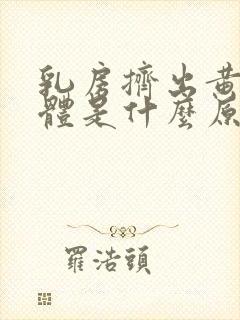 乳房擠出黃
體是什麼原
羅浩頭